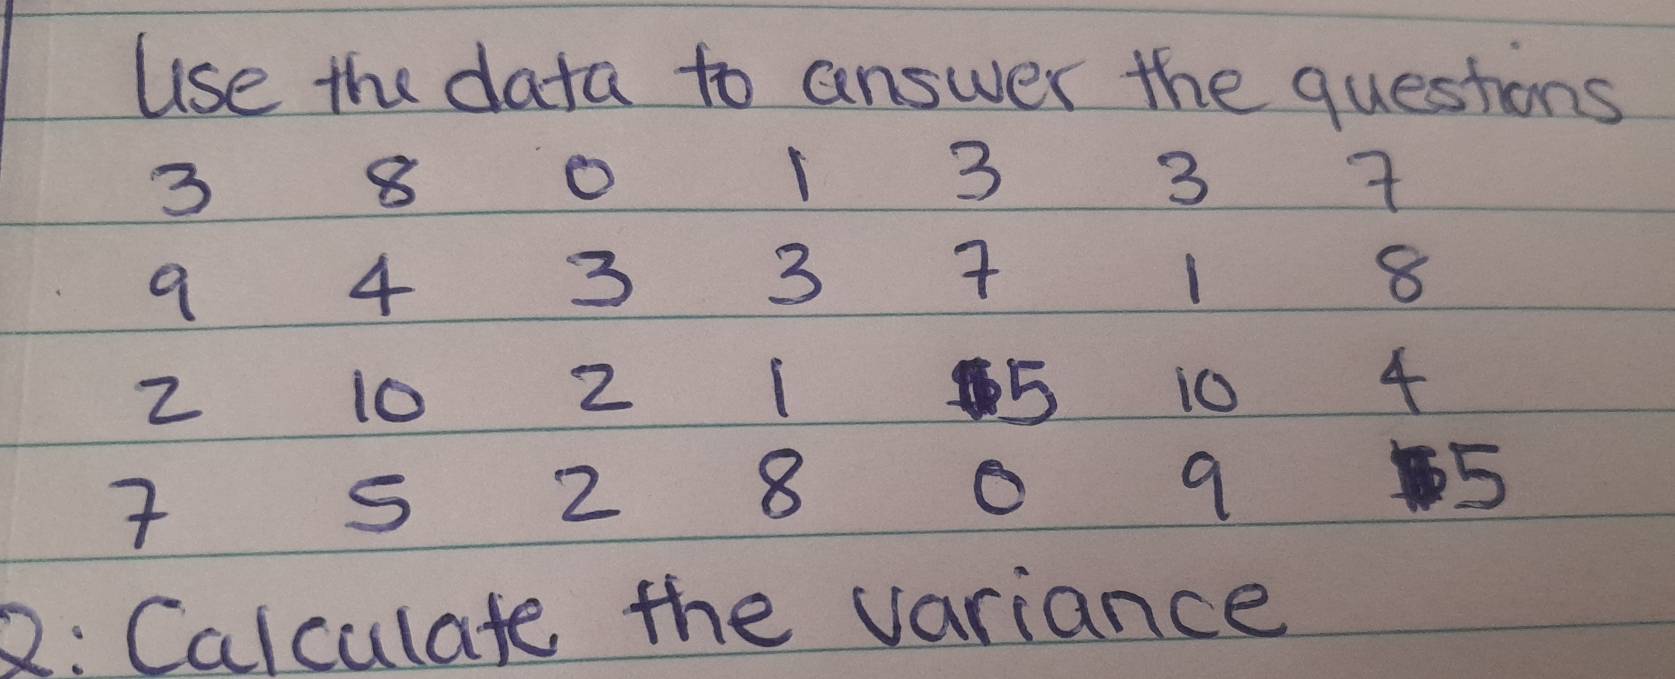 Use the data to answer the questions
3 8 0 1 3 3 7
9 4 3 3 7 1 8
2 10 2 1 5 10 4
7 5 2 8 0 9 5
Q: Calculate the variance